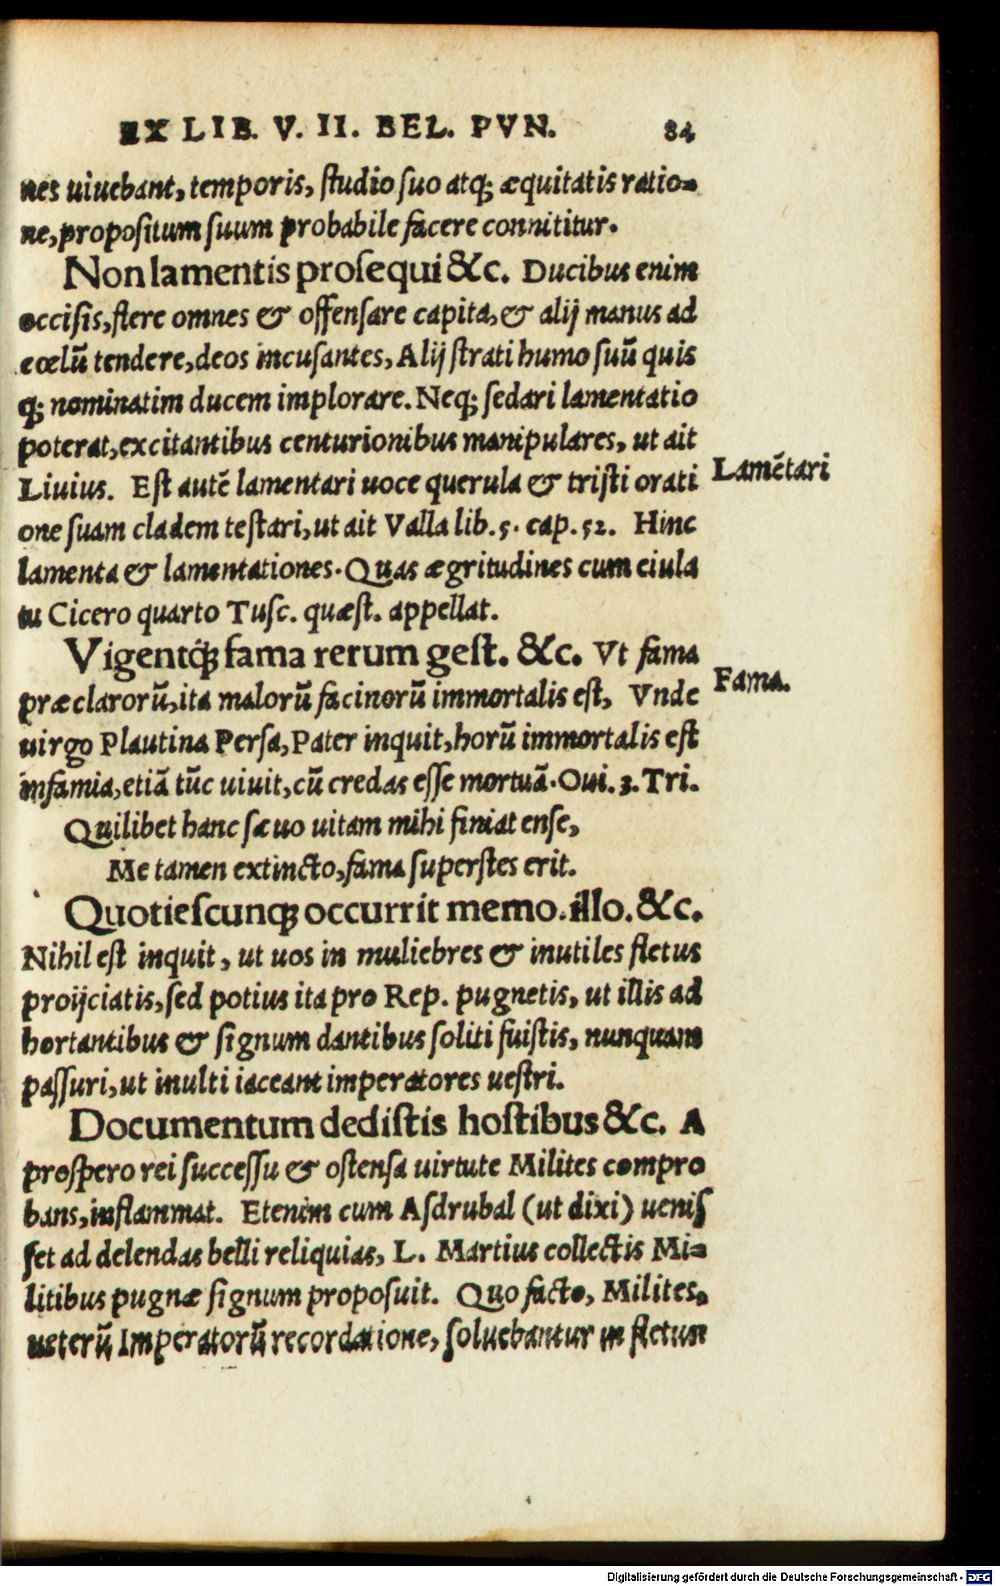 EX LIB. V. II. BEL. PVN. 84
nes uiuebant, temporis, studio suo atq; æquitatis ratio-
ne, propositum suum probabile facere connititur.
Non lamentis prosequi &c. Ducibus enim
occisis, flere omnes & offensare capita, & alij manus ad
cœlũ tendere, deos incusantes, Alij strati humo suũ quis
q; nominatim ducem implorare. Neq; sedari lamentatio
poterat, excitantibus centurionibus manipulares, ut ait
Liuius. Est autẽ lamentari uoce querula & tristi orati
Lamẽtari
one suam cladem testari, ut ait Valla lib. 5. cap. 52. Hinc
lamenta & lamentationes. Quas ægritudines cum eiula
tu Cicero quarto Tusc. quæst. appellat.
Vigentq; fama rerum gest. &c. Vt fama
Fama.
præclarorũ, ita malorũ facinorũ immortalis est, Vnde
uirgo Plautina Persa, Pater inquit, horũ immortalis est
infamia, etiã tũc uiuit, cũ credas esse mortuã. Oui. 3. Tri.
Quilibet hanc sæuo uitam mihi finiat ense,
Me tamen extincto, fama superstes erit.
Quotiescunq; occurrit memo. illo. &c.
Nihil est inquit, ut uos in muliebres & inutiles fletus
proijciatis, sed potius ita pro Rep. pugnetis, ut illis ad
hortantibus & signum dantibus soliti fuistis, nunquam
passuri, ut inulti iaceant imperatores uestri.
Documentum dedistis hostibus &c. A
prospero rei successu & ostensa uirtute Milites compro
bans, inflammat. Etenim cum Asdrubal (ut dixi) uenis
set ad delendas belli reliquias, L. Martius collectis Mi-
litibus pugnæ signum proposuit. Quo facto, Milites,
ueterũ Imperatorũ recordatione, soluebantur in fletum
Digitalisierung gefördert durch die Deutsche Forschungsgemeinschaft - DFG